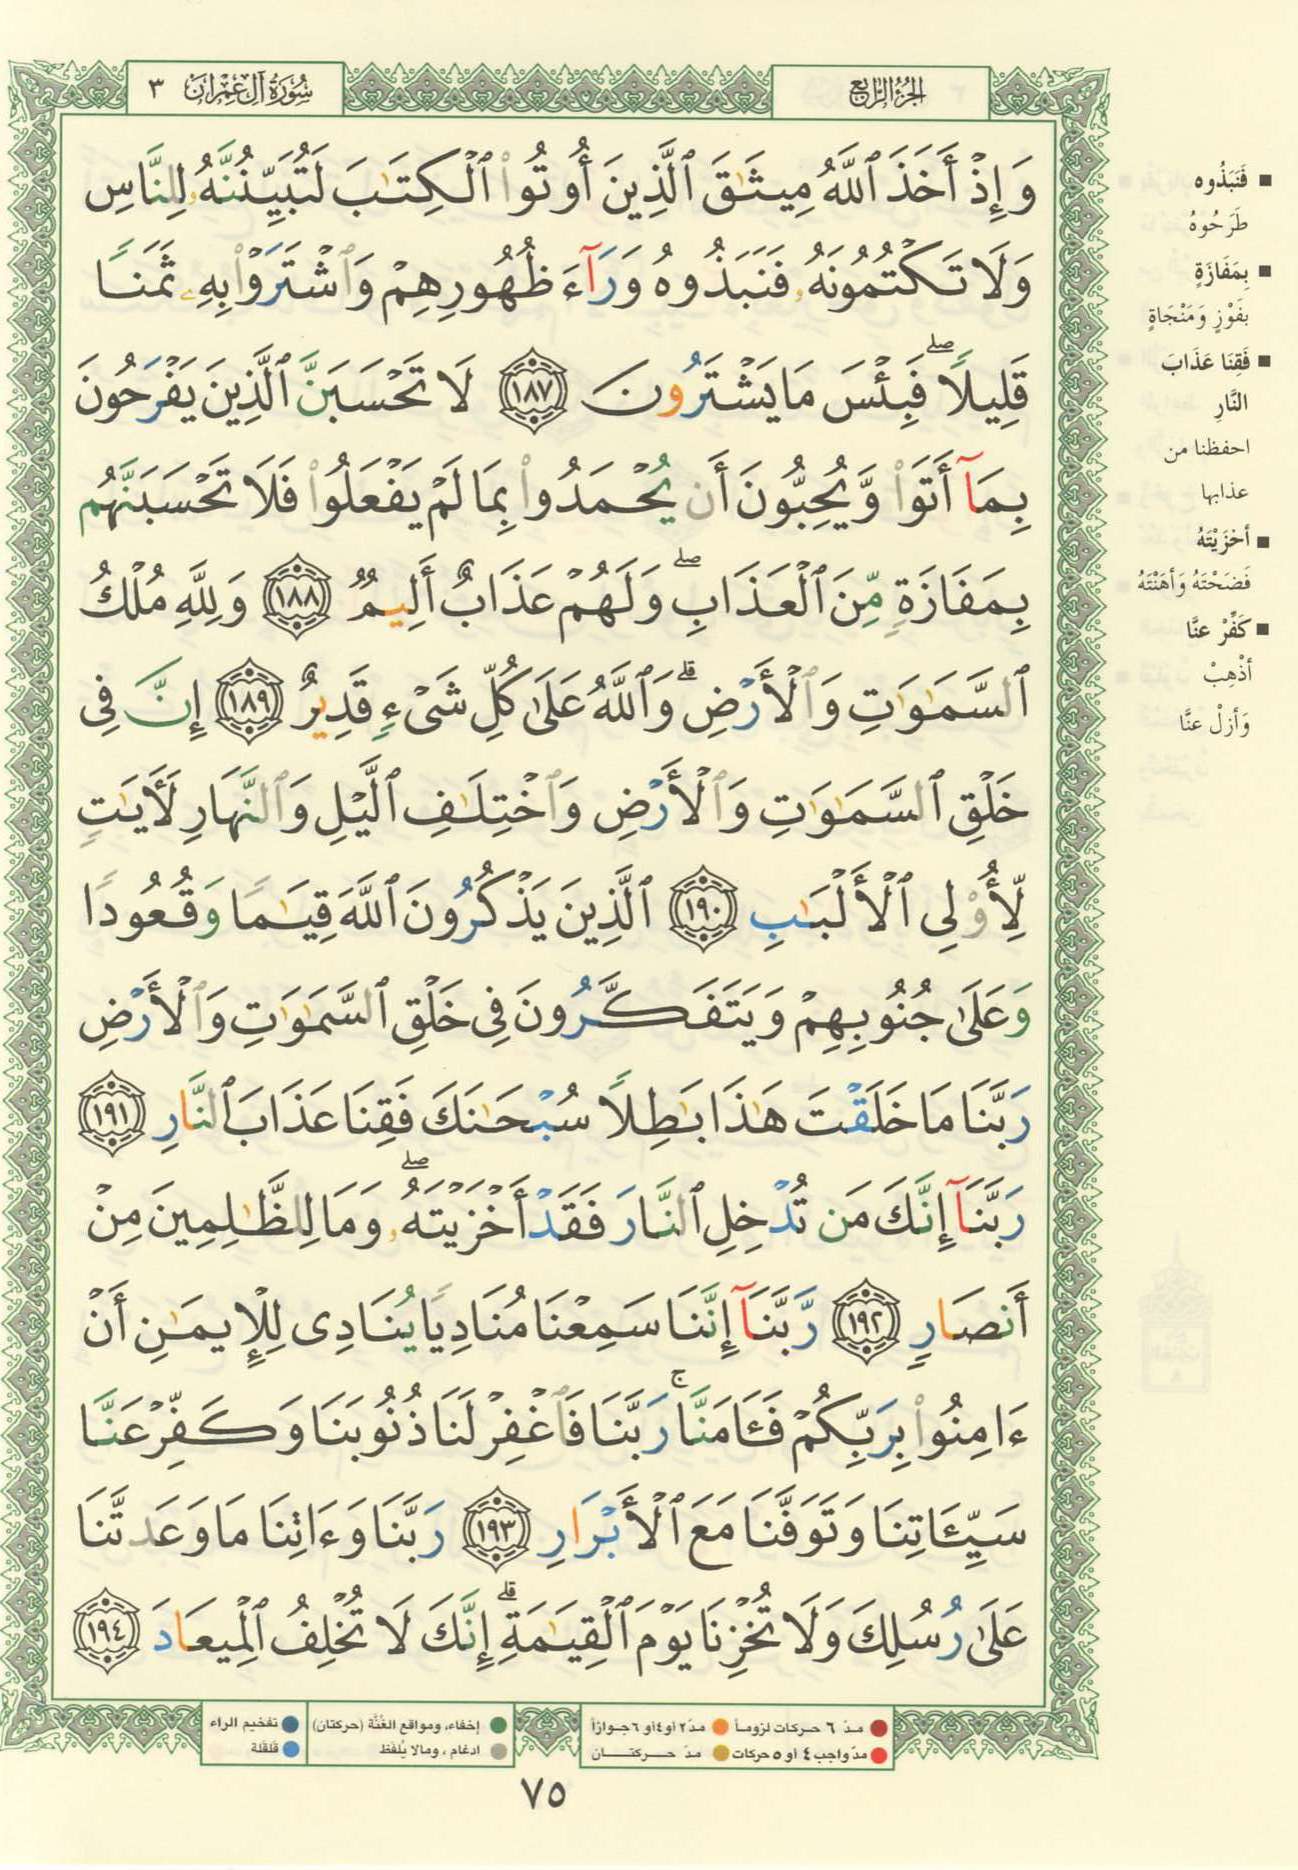 سُورَةُ آلِ عِمْرَانَ ٣
الجُزْءُ الرَّابِع
وَإِذْ أَخَذَ ٱللَّهُ مِيثَٰقَ ٱلَّذِينَ أُوتُوا۟ ٱلْكِتَٰبَ لَتُبَيِّنُنَّهُۥ لِلنَّاسِ
وَلَا تَكْتُمُونَهُۥ فَنَبَذُوهُ وَرَآءَ ظُهُورِهِمْ وَٱشْتَرَوْا۟ بِهِۦ ثَمَنًا
قَلِيلًا ۖ فَبِئْسَ مَا يَشْتَرُونَ ١٨٧ لَا تَحْسَبَنَّ ٱلَّذِينَ يَفْرَحُونَ
بِمَآ أَتَوا۟ وَّيُحِبُّونَ أَن يُحْمَدُوا۟ بِمَا لَمْ يَفْعَلُوا۟ فَلَا تَحْسَبَنَّهُم
بِمَفَازَةٍ مِّنَ ٱلْعَذَابِ ۖ وَلَهُمْ عَذَابٌ أَلِيمٌ ١٨٨ وَلِلَّهِ مُلْكُ
ٱلسَّمَٰوَٰتِ وَٱلْأَرْضِ ۗ وَٱللَّهُ عَلَىٰ كُلِّ شَىْءٍ قَدِيرٌ ١٨٩ إِنَّ فِى
خَلْقِ ٱلسَّمَٰوَٰتِ وَٱلْأَرْضِ وَٱخْتِلَٰفِ ٱلَّيْلِ وَٱلنَّهَارِ لَءَايَٰتٍ
لِّأُو۟لِى ٱلْأَلْبَٰبِ ١٩٠ ٱلَّذِينَ يَذْكُرُونَ ٱللَّهَ قِيَٰمًا وَقُعُودًا
وَعَلَىٰ جُنُوبِهِمْ وَيَتَفَكَّرُونَ فِى خَلْقِ ٱلسَّمَٰوَٰتِ وَٱلْأَرْضِ
رَبَّنَا مَا خَلَقْتَ هَٰذَا بَٰطِلًا سُبْحَٰنَكَ فَقِنَا عَذَابَ ٱلنَّارِ ١٩١
رَبَّنَآ إِنَّكَ مَن تُدْخِلِ ٱلنَّارَ فَقَدْ أَخْزَيْتَهُۥ ۖ وَمَا لِلظَّٰلِمِينَ مِنْ
أَنصَارٍ ١٩٢ رَّبَّنَآ إِنَّنَا سَمِعْنَا مُنَادِيًا يُنَادِى لِلْإِيمَٰنِ أَنْ
ءَامِنُوا۟ بِرَبِّكُمْ فَـَٔامَنَّا ۚ رَبَّنَا فَٱغْفِرْ لَنَا ذُنُوبَنَا وَكَفِّرْ عَنَّا
سَيِّـَٔاتِنَا وَتَوَفَّنَا مَعَ ٱلْأَبْرَارِ ١٩٣ رَبَّنَا وَءَاتِنَا مَا وَعَدتَّنَا
عَلَىٰ رُسُلِكَ وَلَا تُخْزِنَا يَوْمَ ٱلْقِيَٰمَةِ ۗ إِنَّكَ لَا تُخْلِفُ ٱلْمِيعَادَ ١٩٤
■ فَنَبَذُوه
طَرَحُوهُ
■ بِمَفَازَةٍ
بفَوْزٍ وَمَنْجَاةٍ
■ فَقِنَا عَذَابَ
النَّارِ
احفظنا من
عذابها
■ أخْزَيْتَهُ
فَضَحْتَهُ وَأهَنْتَهُ
■ كَفِّرْ عنَّا
أذْهِبْ
وَأزلْ عنَّا
مدّ ٦ حركات لزوماً مدّ ٢ أو ٤ أو ٦ جوازاً
مدّ واجب ٤ أو ٥ حركات مدّ حركتان
إخفاء، ومواقع الغُنَّة (حركتان) تفخيم الراء
ادغام، ومالا يُلفَظ قلقلة
٧٥